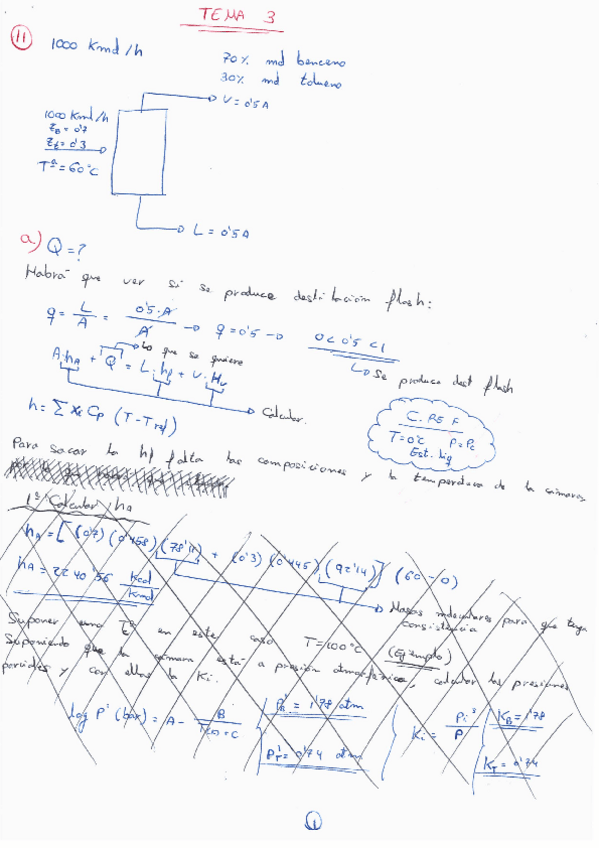 TEMA 3
11
1000 Kmol/h
70% mol benceno
30% mol tolueno
V = 0'5 A
1000 Kmol/h
Z_B = 0'7
Z_t = 0'3
Tª = 60°C
L = 0'5 A
a) Q = ?
Habrá que ver si se produce destilación flash:
q = L/A = 0'5·A/A → q = 0'5 → 0 < 0'5 < 1
Se produce dest flash
Lo que se quiere
A·h_A + Q = L·h_l + V·H_v
Calcular.
h = Σ x_i Cp (T - T_ref)
C. REF
T = 0°C P = Pc
Est. liq
Para sacar la hl falta las composiciones y la temperatura de la cámara,
1º Calcular h_A
h_A = [(0'7)(0'458)(78'11) + (0'3)(0'445)(92'14)] (60 - 0)
h_A = 2240'56 Kcal/Kmol
Masas moleculares para que tenga
consistencia
Suponer una Tª en este caso T = 100°C (Ejemplo)
Suponiendo que la cámara está a presión atmosférica, calcular las presiones
parciales y con ellas la Ki.
log P° (bar) = A - B/(T(°C) + C)
P_B° = 1'78 atm
P_T° = 0'74 atm
K_i = P_i°/P
K_B = 1'78
K_T = 0'74
1